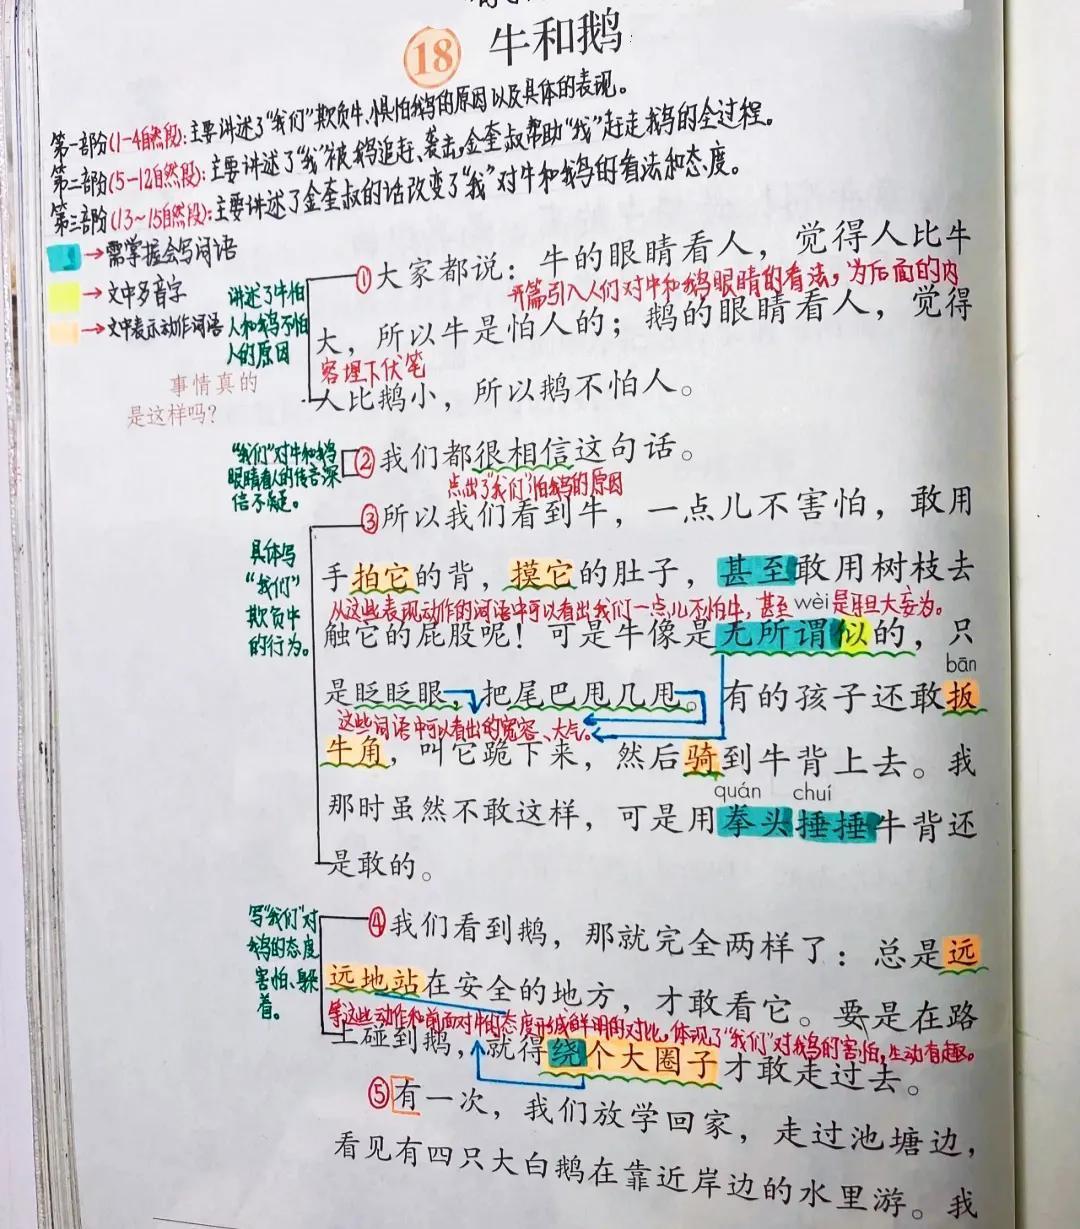 18 牛和鹅
第一部份(1-4自然段):主要讲述了“我们”欺负牛,惧怕鹅的原因以及具体的表现。
第二部份(5-12自然段):主要讲述了“我”被鹅追赶、袭击,金奎叔帮助“我”赶走鹅的全过程。
第三部份(13~15自然段):主要讲述了金奎叔的话改变了“我”对牛和鹅的看法和态度。
→需掌握会写词语
→文中多音字
→文中表示动作词语
讲述了牛怕
人和鹅不怕
人的原因
事情真的
是这样吗?
①大家都说:牛的眼睛看人,觉得人比牛
开篇引入人们对牛和鹅眼睛的看法,为后面的内
大,所以牛是怕人的;鹅的眼睛看人,觉得
容埋下伏笔
人比鹅小,所以鹅不怕人。
“我们”对牛和鹅
眼睛看人的传言深
信不疑。
②我们都很相信这句话。
点出了“我们”怕鹅的原因
具体写
“我们”
欺负牛
的行为。
③所以我们看到牛,一点儿不害怕,敢用
手拍它的背,摸它的肚子,甚至敢用树枝去
从这些表现动作的词语中可以看出我们一点儿不怕牛,甚至是胆大妄为。
wèi
触它的屁股呢!可是牛像是无所谓似的,只
bān
是眨眨眼,把尾巴甩几甩。有的孩子还敢扳
这些词语中可以看出的宽容、大气。
牛角,叫它跪下来,然后骑到牛背上去。我
quán chuí
那时虽然不敢这样,可是用拳头捶捶牛背还
是敢的。
写“我们”对
鹅的态度
害怕、躲
着。
④我们看到鹅,那就完全两样了:总是远
远地站在安全的地方,才敢看它。要是在路
等这些动作和前面对牛的态度形成鲜明的对比,体现了“我们”对鹅的害怕,生动有趣。
上碰到鹅,就得绕个大圈子才敢走过去。
⑤有一次,我们放学回家,走过池塘边,
看见有四只大白鹅在靠近岸边的水里游。我